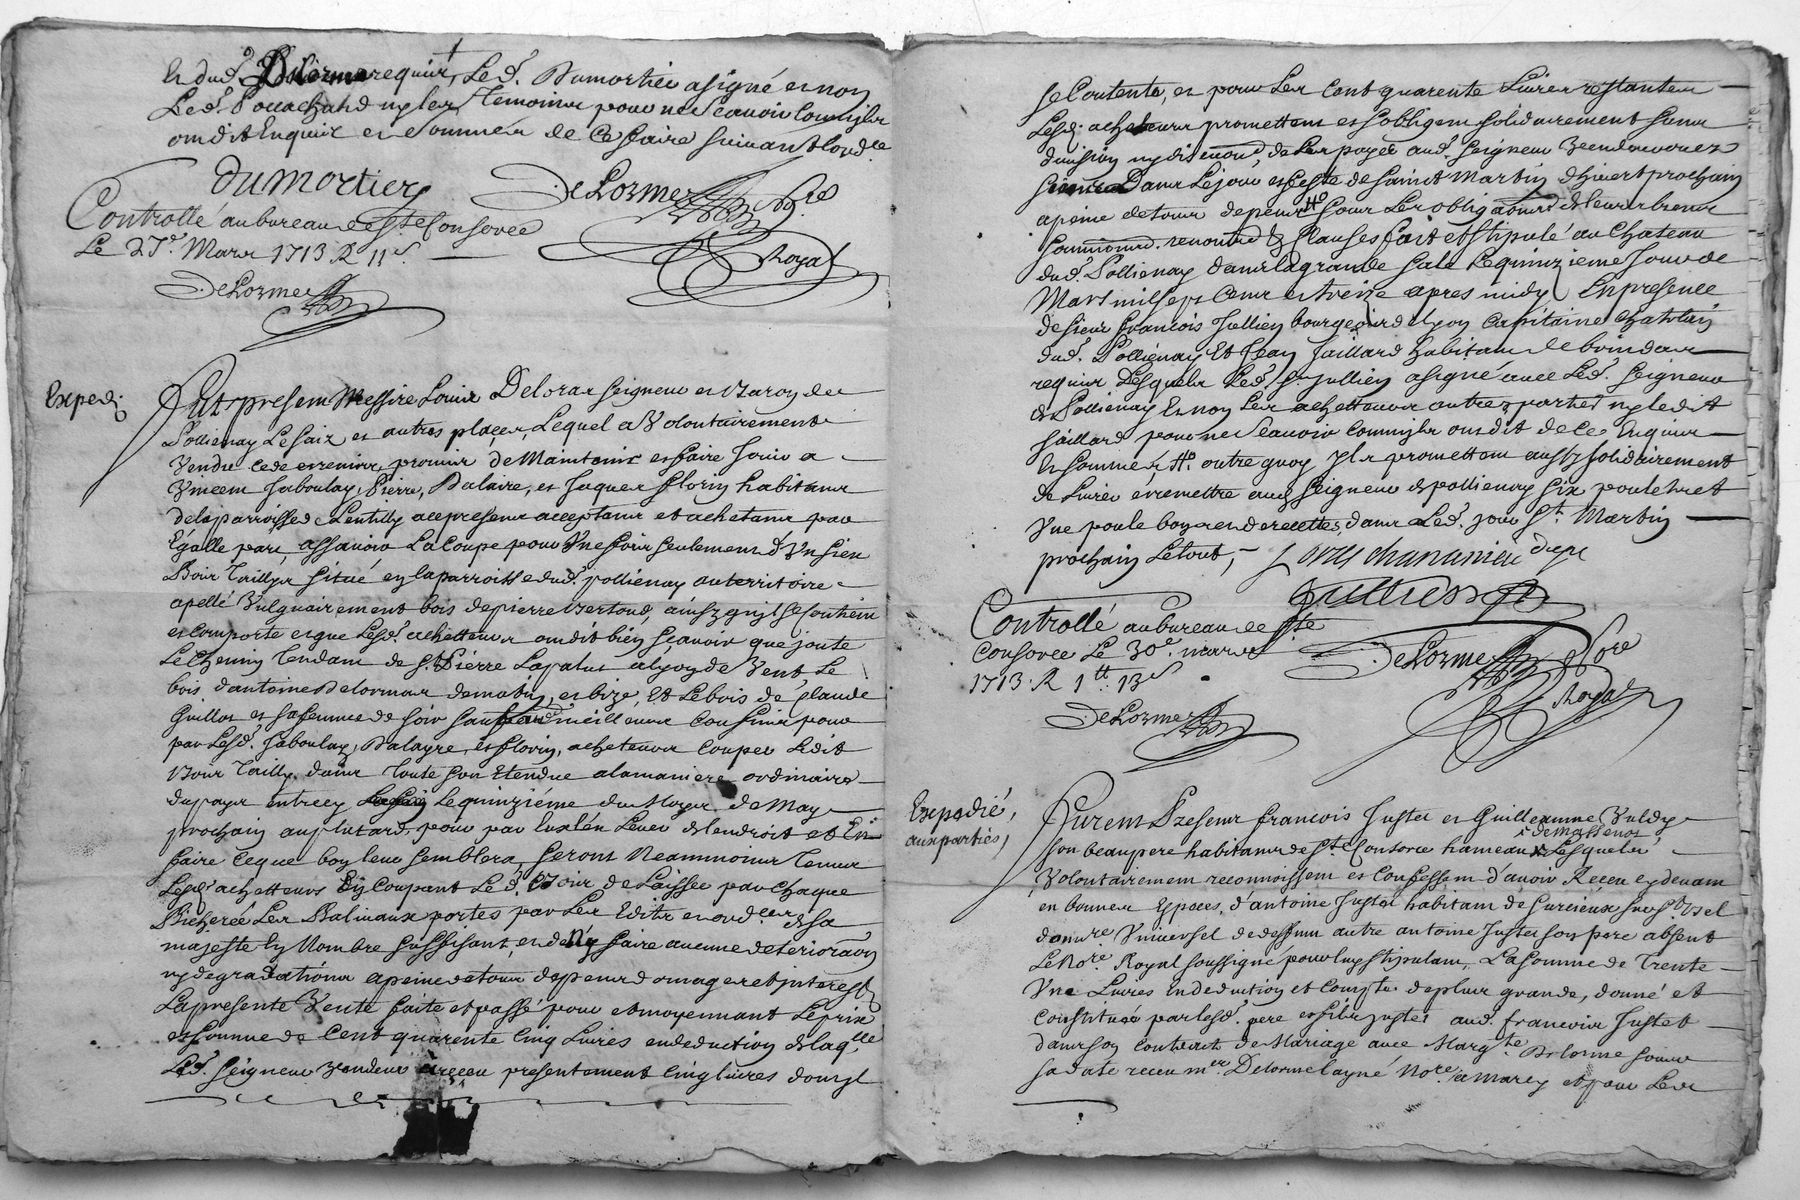 Et dud. Delorme requis, Led. Dumortier a signé et non
Led. ny les temoins pour ne scavoir comme ils
ont dit Enquis et sommés de ce faire suivant lord.ce
dumortier
DeLorme No.re
Royal
Controllé au bureau de Ste Consorce
Le 27e Mars 1713 R 11s.
DeLorme
Exped.
Fut present Messire Louis Deloras seigneur et Baron de
Pollienay Lefaix et autres places, Lequel a Volontairement
Vendu cede et remis, promis de Maintenir et faire Jouir a
Vincent Jaboulay, Pierre Balaire, et Jaques florin habitans
dela parroisse de Lentilly a ce presens acceptans et achetans par
Egalle part, assavoir La coupe pour Une fois seulement d'Un sien
Bois Taillys situé en la parroisse dud. pollienay au territoire
apellé Vulguairement bois de pierre ainsy qu'il se contient
et comporte et que Lesd. achetteurs ont dit bien scavoir que joute
Le Chemin Tendant de St Pierre Lapalut a Lyon de Vent, Le
bois d'antoine Delormas de matin, et bize, Et Le bois de Claude
Guillot et sa femme de soir sauf meilleurs Confins pour
par Lesd. Jaboulay, Balayre, et florin, acheteurs Couper Ledit
Bois Tailly dans Toute son Etendue a la maniere ordinaire
du pays entre cy Le quinzieme du Moys de May
prochain au plutard, pour par Eux l'en Lever de l'endroit et En
faire ce que bon leur semblera, seront Neanmoins Tenus
Lesd. achetteurs En Coupant Led. Bois de Laisser par Chaque
Bicherée Les Balivaux portés par Les Edits et ord.ces de sa
majesté En Nombre suffisant, et de N'y faire aucune deteriora͠on
ny degradations a peine de tous depens domages et interest
La presente Vente faite et passé pour et moyennant Le prix
et somme de Cent quarente Cinq Livres en deduction de laq.lle
Led. seigneur Vendeur a receu presentement Cinq livres dont il
se Contente, et pour Les Cent quarente Livres restantes
Lesd. acheteurs promettent et s'obligent solidairement sans
division ny discution, de Les payer aud. seigneur
Dans Le jour et feste de Sainct Martin d'hivert prochain
a peine de tous depens &c sous Les obliga͠ons de leurs biens
renon &c Clauses fait et stipulé au Chateau
dud. Pollienay dans la grande sale Le quinzieme Jour de
Mars mil sept Cens et treize apres midy En presence
de sieur francois Jullien bourgeois de Lyon Capitaine Chatelain
dud. Pollienay Et Jean Jaillard habitant de brindas
requis Desquels Led. Sr Jullien a signé avec Led. Seigneur
de Pollienay Et non Les achetteurs autres parties ny ledit
Jaillard pour ne scavoir Comme ils ont dit de Ce Enquis
Et sommés &c. outre quoy Ils promettent aussy solidairement
de Livrer et remettre aud. seigneur de pollienay six poulets et
Une poule bons et de recettes, dans Led. jour St Martin
prochain Le tout,
Jullien
Controllé au bureau de Ste
Consorce Le 30e mars
1713. R 1tt: 13s
DeLorme No.re
Royal
DeLorme
Expedié,
aux parties,
Furent Presens francois Juster et Guilleaume
de massenot
son beaupere habitans de Ste Consorce hameau x Lesquels
Volontairement reconnoissent et Confessent d'avoir Receu cy devant
en bonnes Especes, d'antoine Juster habitant de Sur
Universel de deffunt autre antoine Juster son pere absent
Le No.re Royal soussigné pour luy stipulant, La somme de Trente
Une Livres En deduction et Compte de plus grande, donné et
Constitué par lesd. pere et fils juster aud. francois Juster
dans son Contract de Mariage avec Marg.te Delorme sous
sa date receu m.re Delorme layné No.re a marcy et pour Les